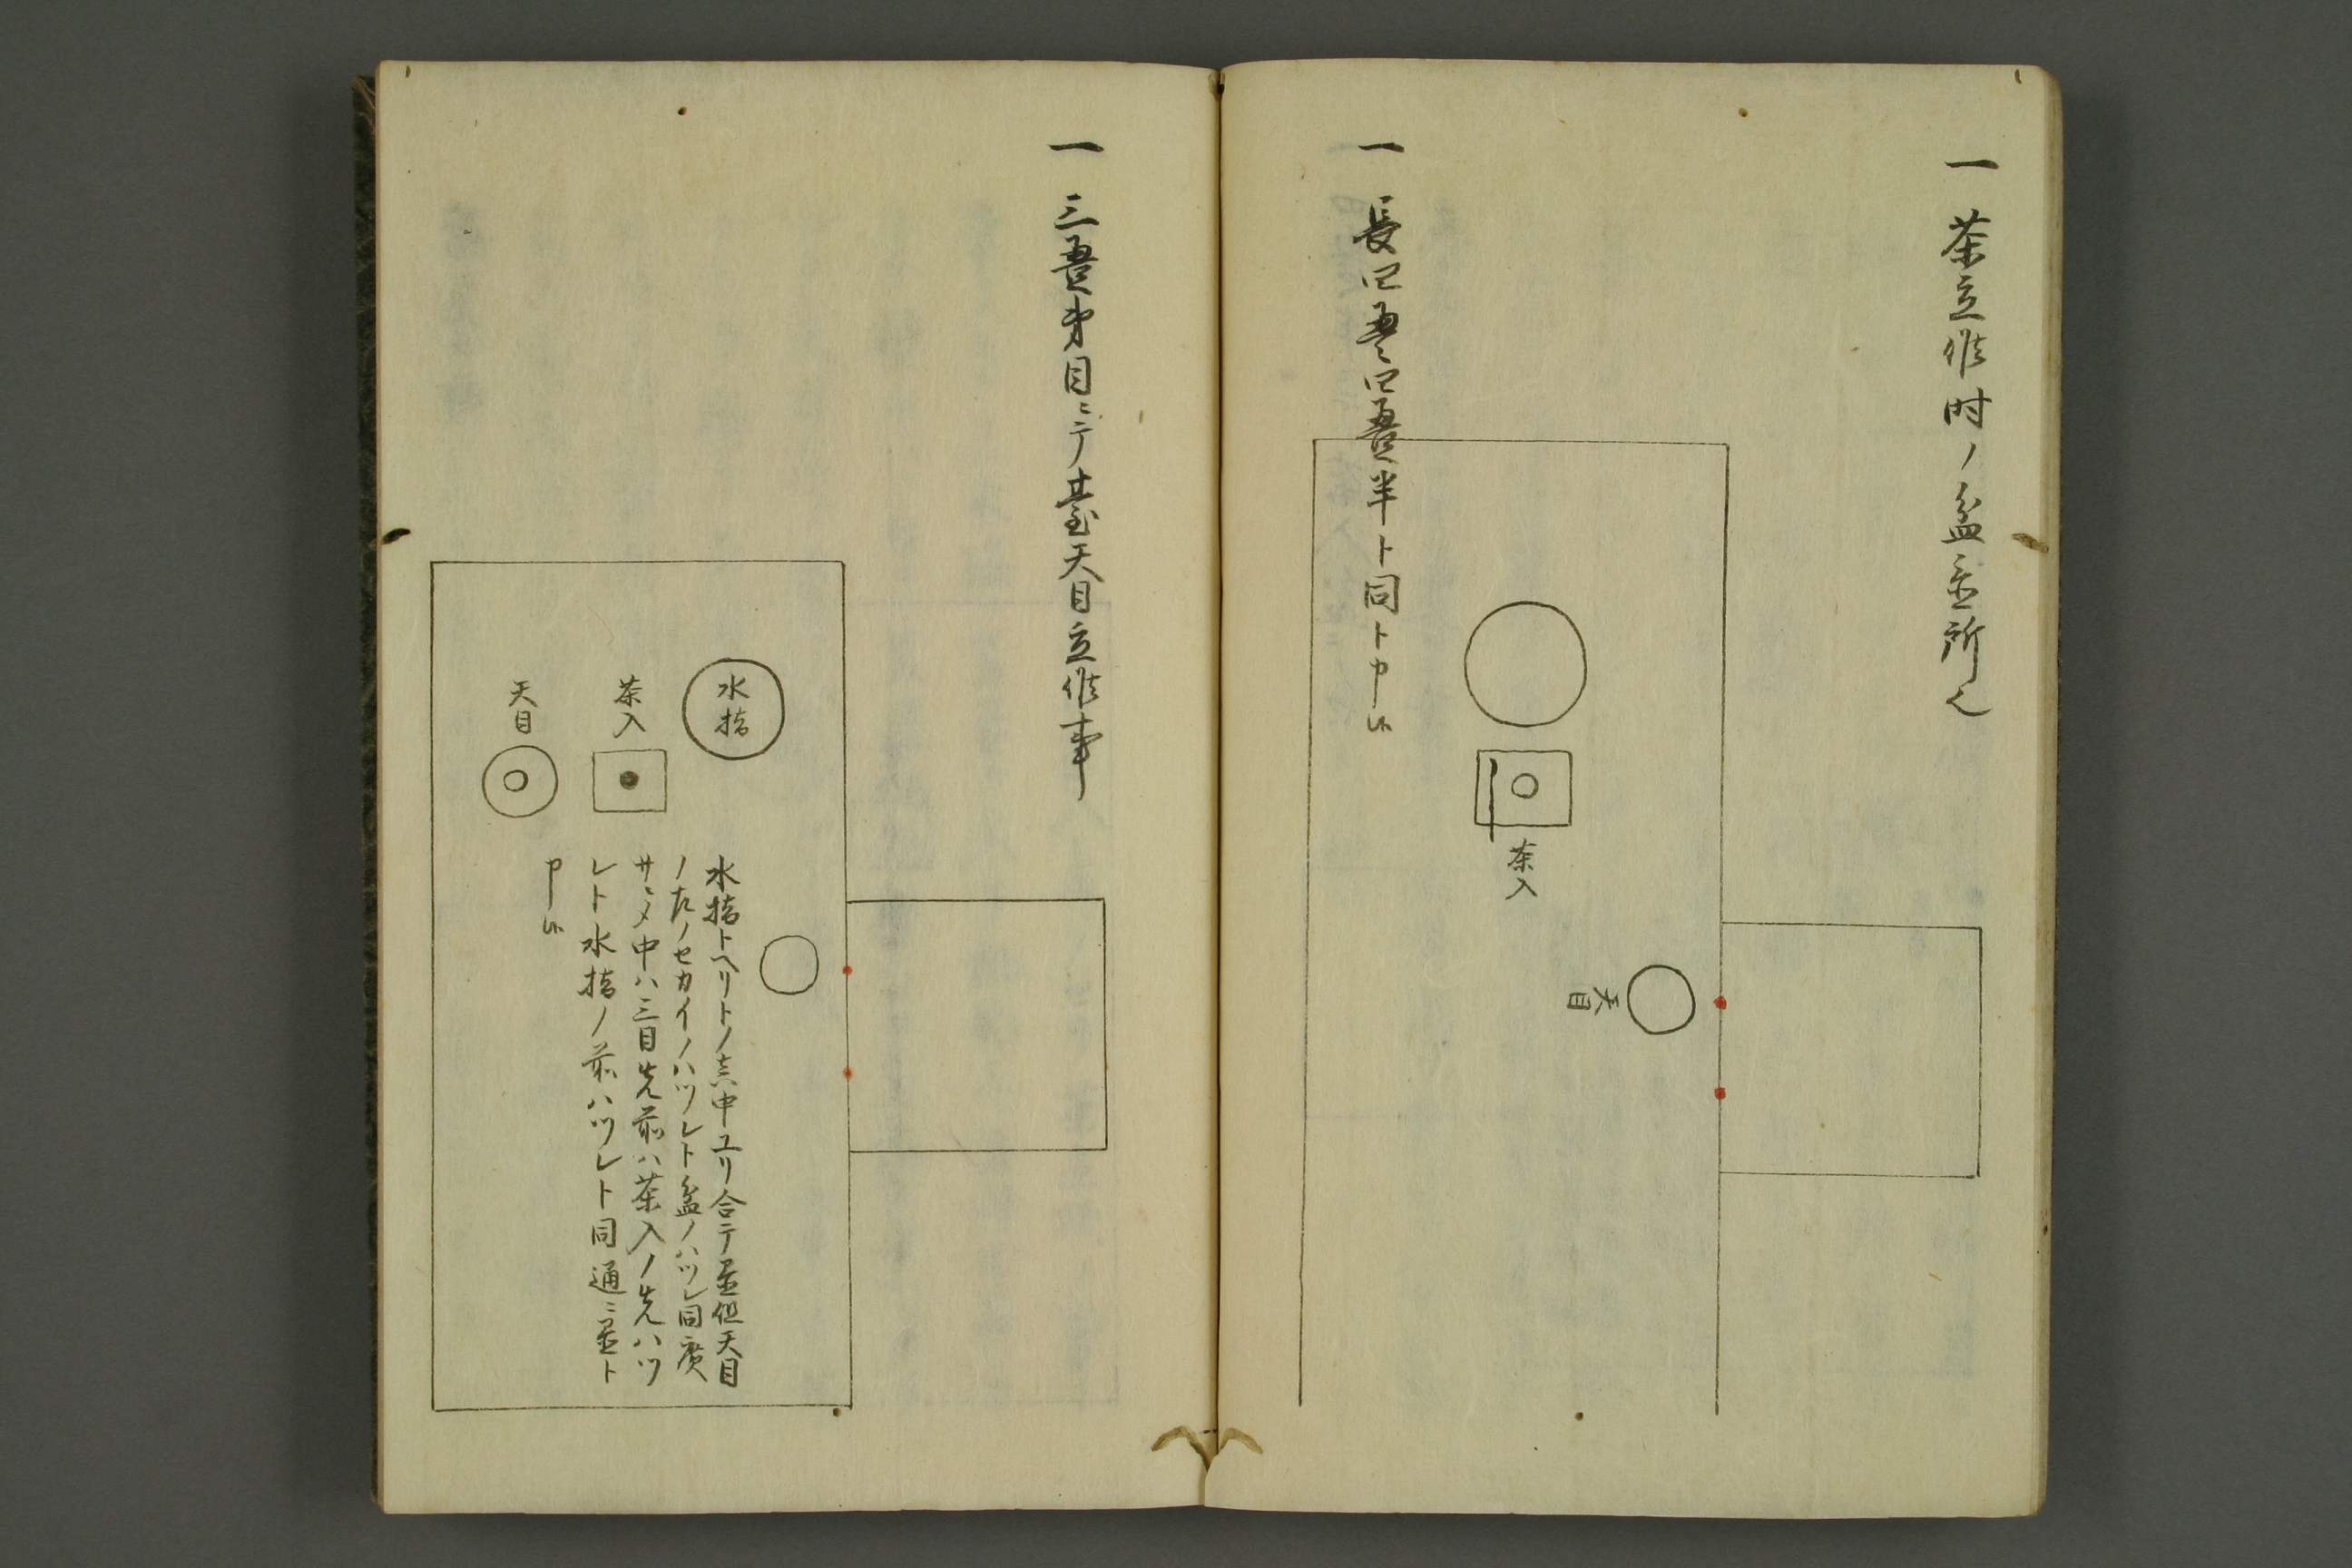 一 茶立様時ノ盆置所之
茶入
天目
一 長四畳四畳半ト同ト申候
一 三畳半目ニテ臺天目立様事
水指
茶入
天目
水指トヘリトノ真中ユリ合テ置但天目
ノ左ノセカイノハツレト盆ノハツレ同廣
サニメ中ハ三目先前ハ茶入ノ先ハツ
レト水指ノ前ハツレト同通ニ置ト
申候